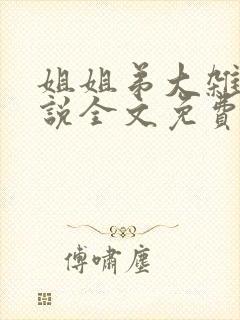 姐姐弟大雜
說全文免費
傅嘯塵